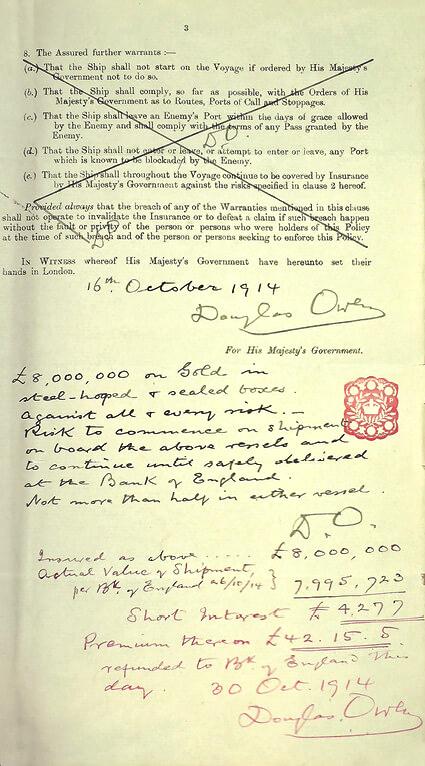 3
8. The Assured further warrants :—
(a.) That the Ship shall not start on the Voyage if ordered by His Majesty's
Government not to do so.
(b.) That the Ship shall comply, so far as possible, with the Orders of His
Majesty's Government as to Routes, Ports of Call and Stoppages.
(c.) That the Ship shall leave an Enemy's Port within the days of grace allowed
by the Enemy and shall comply with the terms of any Pass granted by the
Enemy.
D.O.
(d.) That the Ship shall not enter or leave, or attempt to enter or leave, any Port
which is known to be blockaded by the Enemy.
(e.) That the Ship shall throughout the Voyage continue to be covered by Insurance
by His Majesty's Government against the risks specified in clause 2 hereof.
Provided always that the breach of any of the Warranties mentioned in this clause
shall not operate to invalidate the Insurance or to defeat a claim if such breach happen
without the fault or privity of the person or persons who were holders of this Policy
at the time of such breach and of the person or persons seeking to enforce this Policy.
In Witness whereof His Majesty's Government have hereunto set their
hands in London.
16th October 1914
Douglas Owen
For His Majesty's Government.
£8,000,000 on Gold in
steel-hoped & sealed boxes.
Against all & every risk. —
Risk to commence on shipment
on board the above vessels and
to continue until safely delivered
at the Bank of England.
Not more than half in either vessel.
D.O.
Insured as above ..... £8,000,000
Actual Value of Shipment,
per Bk. of England 26/10/14 } 7,995,723
Short Interest £ 4277
Premium thereon £42.15.5
refunded to Bk of England this
day. 30 Oct. 1914
Douglas Owen